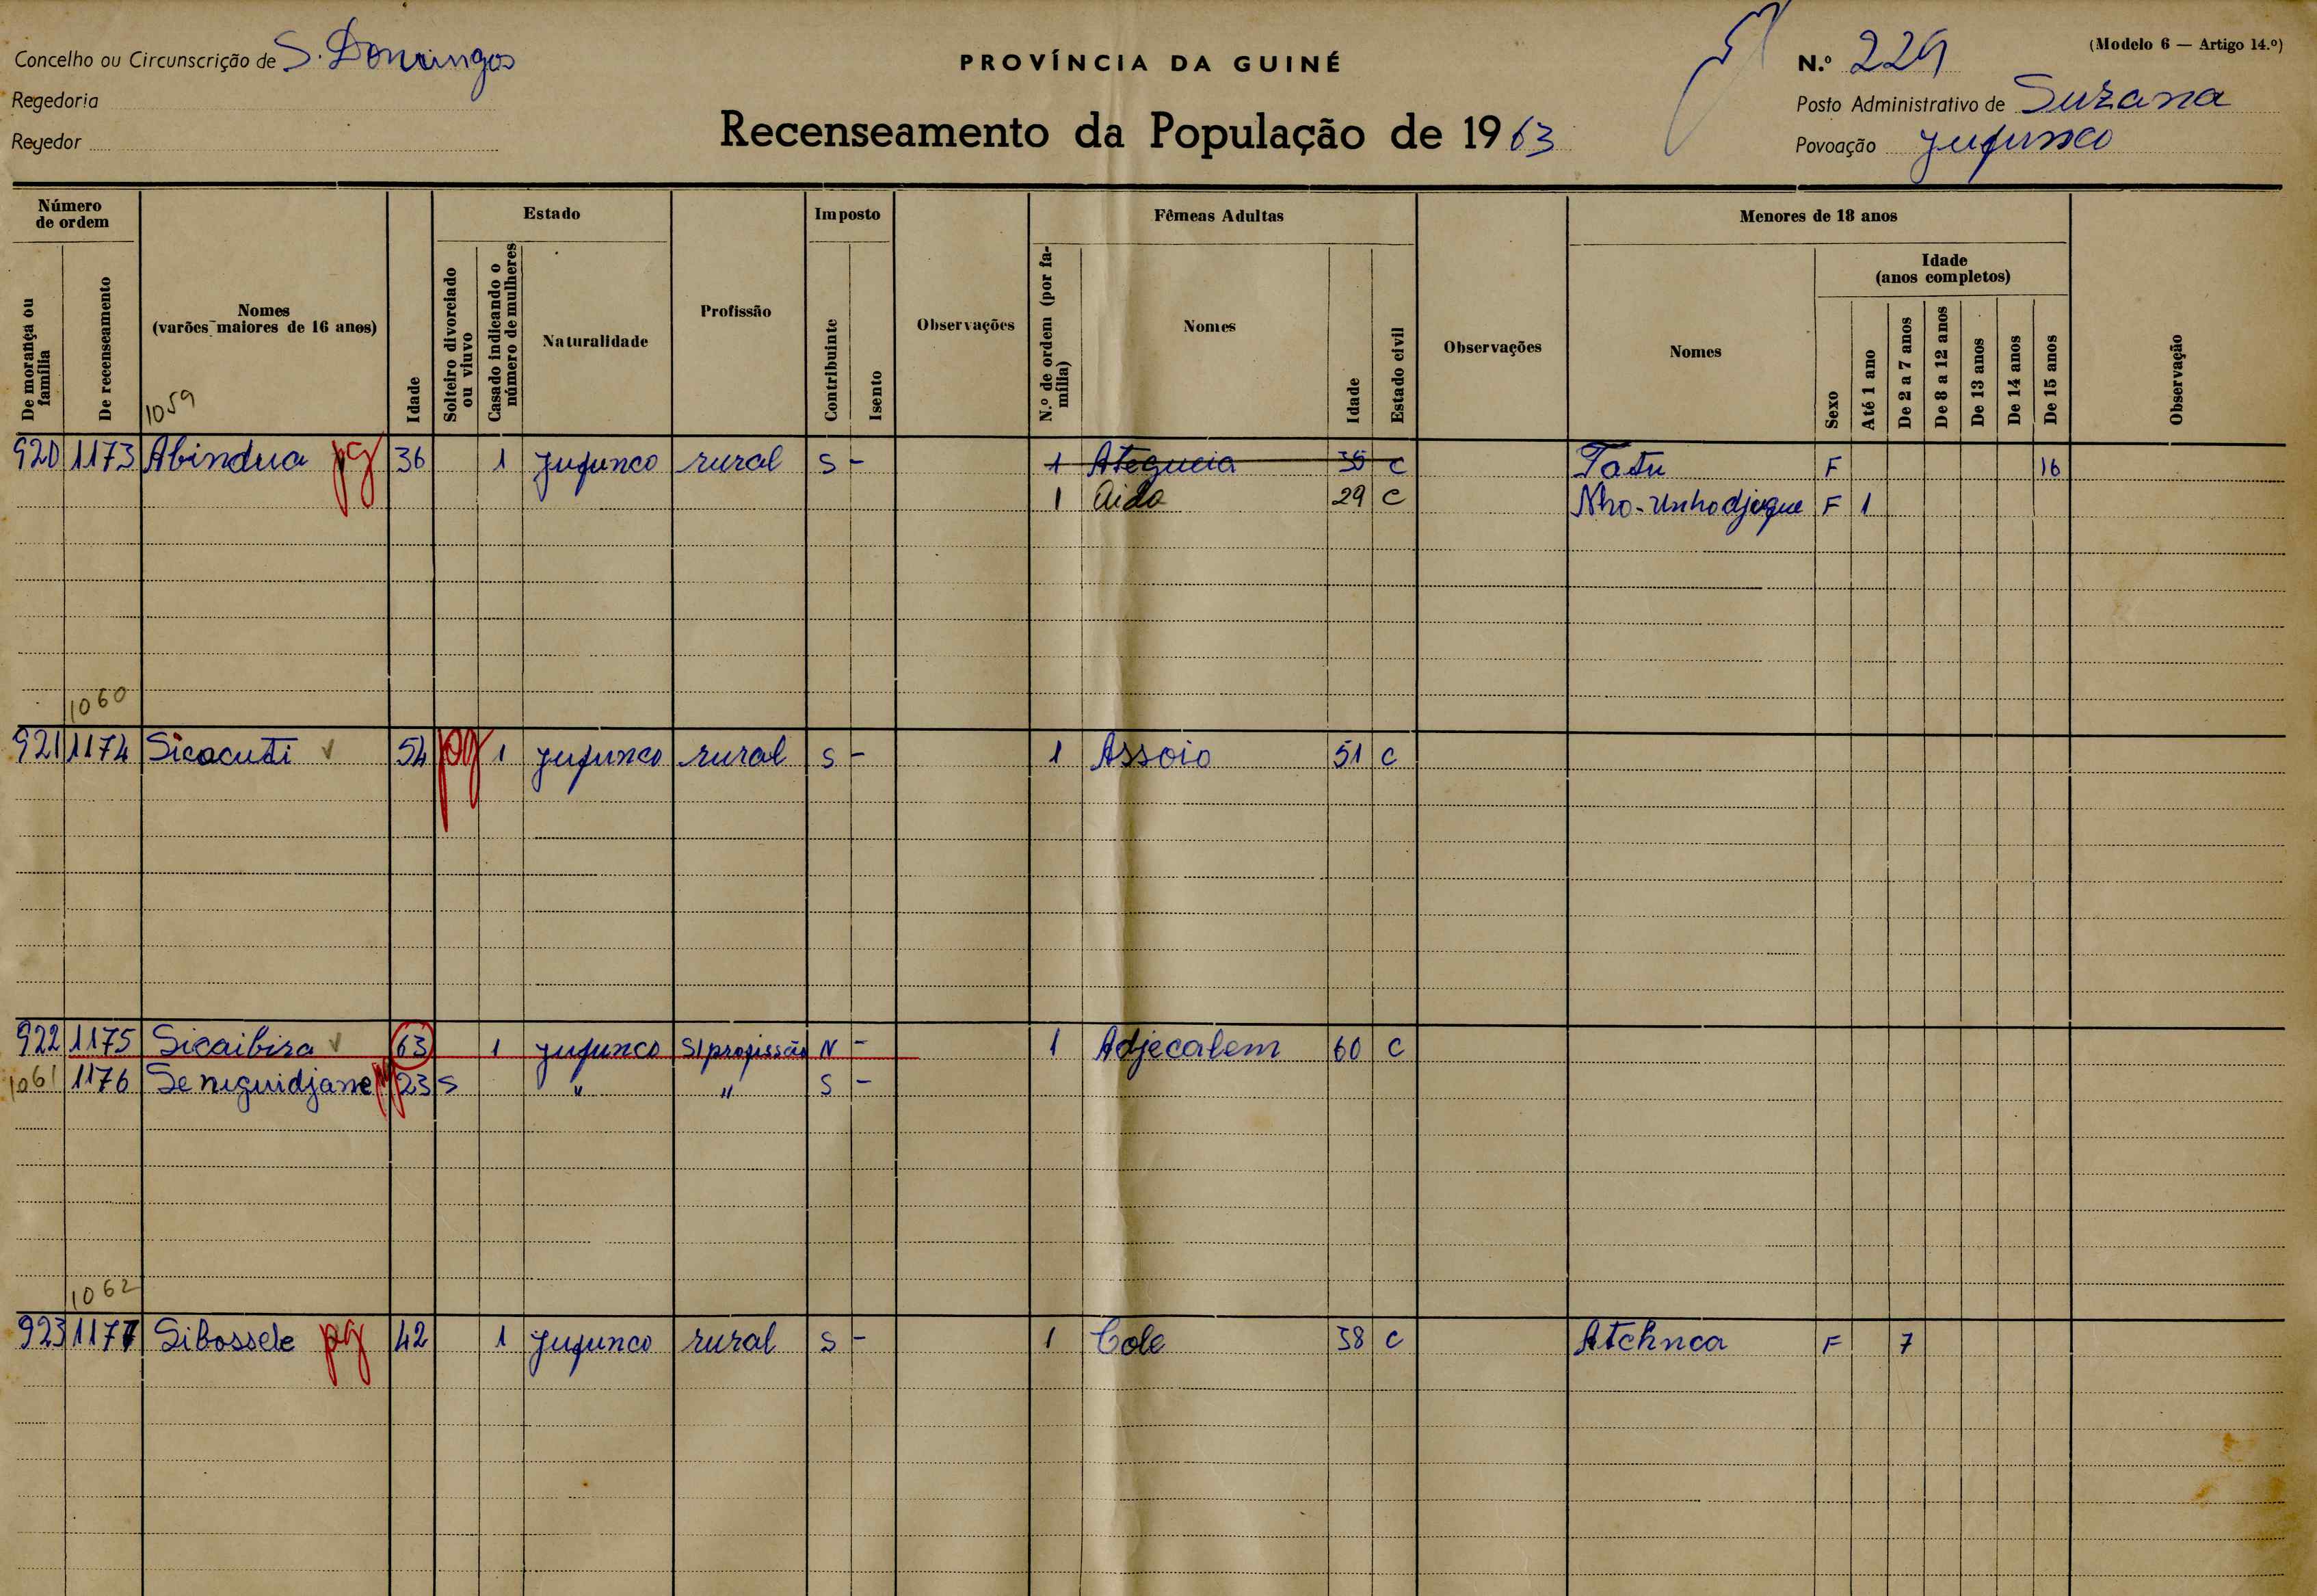 Concelho ou Circunscrição de S. Domingos
Regedoria
Regedor
PROVÍNCIA DA GUINÉ
Recenseamento da População de 1963
(Modelo 6 — Artigo 14.º)
N.º 229
Posto Administrativo de Suzana
Povoação Jufunco
Número de ordem
De morança ou família
De recenseamento
Nomes
(varões maiores de 16 anos)
Idade
Estado
Solteiro divorciado ou viuvo
Casado indicando o número de mulheres
Naturalidade
Profissão
Imposto
Contribuinte
Isento
Observações
Fêmeas Adultas
N.º de ordem (por família)
Nomes
Idade
Estado civil
Observações
Menores de 18 anos
Nomes
Sexo
Idade
(anos completos)
Até 1 ano
De 2 a 7 anos
De 8 a 12 anos
De 13 anos
De 14 anos
De 15 anos
Observação
1059
920 1173 Abindua pg 36 1 Jufunco rural S - 1 Ategueia 35 C Tatu F 16
1 Aida 29 C Nho-Unhodjugue F 1
1060
921 1174 Sicacuti 54 pg 1 Jufunco rural S - 1 Assoio 51 C
922 1175 Sicaibira 63 1 Jufunco S/profissão N - 1 Adjecalem 60 C
1061 1176 Seneguidjane pg 23 S " " S -
1062
923 1177 Sibossele pg 42 1 Jufunco rural S - 1 Cole 38 C Atchnca F 7